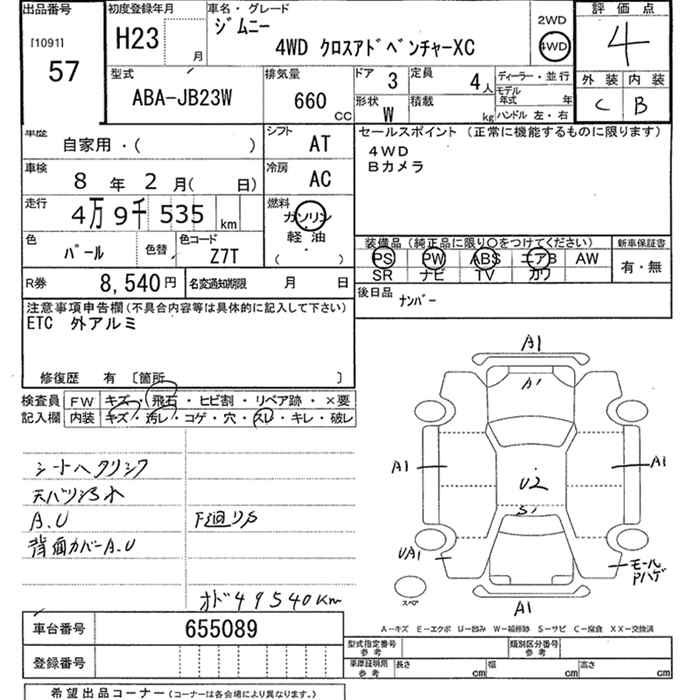 出品番号
[1091]
57
初度登録年月
H23
月
車名・グレード
ジムニー
4WD クロスアドベンチャーXC
2WD
4WD
評価点
4
外装 内装
C B
型式
ABA-JB23W
排気量
660 CC
ドア 3
定員 4人
形状 W
積載 kg
ディーラー・並行
モデル年式 年
ハンドル 左・右
車歴
自家用・( )
シフト AT
車検
8年 2月( 日)
冷房 AC
走行
4万 9千 535 km
燃料
ガソリン
軽・油
( )
色
パール
色替
色コード
Z7T
セールスポイント (正常に機能するものに限ります)
4WD
Bカメラ
装備品 (純正品に限り○をつけてください)
PS PW ABS エアB AW
SR ナビ TV カワ
新車保証書
有・無
R券 8,540円
名変通知期限 月 日
後日品
ナンバー
注意事項申告欄(不具合内容等は具体的に記入して下さい)
ETC 外アルミ
修復歴 有 〔箇所 〕
検査員記入欄
FW キズ・飛石・ヒビ割・リペア跡・×要
内装 キズ・汚レ・コゲ・穴・スレ・キレ・破レ
A.U
下廻りS
背面カバーA.U
オド49540Km
A1
A1
A1
U2
A1
UA1
モール
アハゲ
スペア
A1
A-キズ E-エクボ U-凹み W-補修跡 S-サビ C-腐食 XX-交換済
車台番号 655089
登録番号
型式指定番号 参考
類別区分番号 参考
車庫証明用 参考
長さ cm
幅 cm
高さ cm
希望出品コーナー (コーナーは各会場により異なります。)